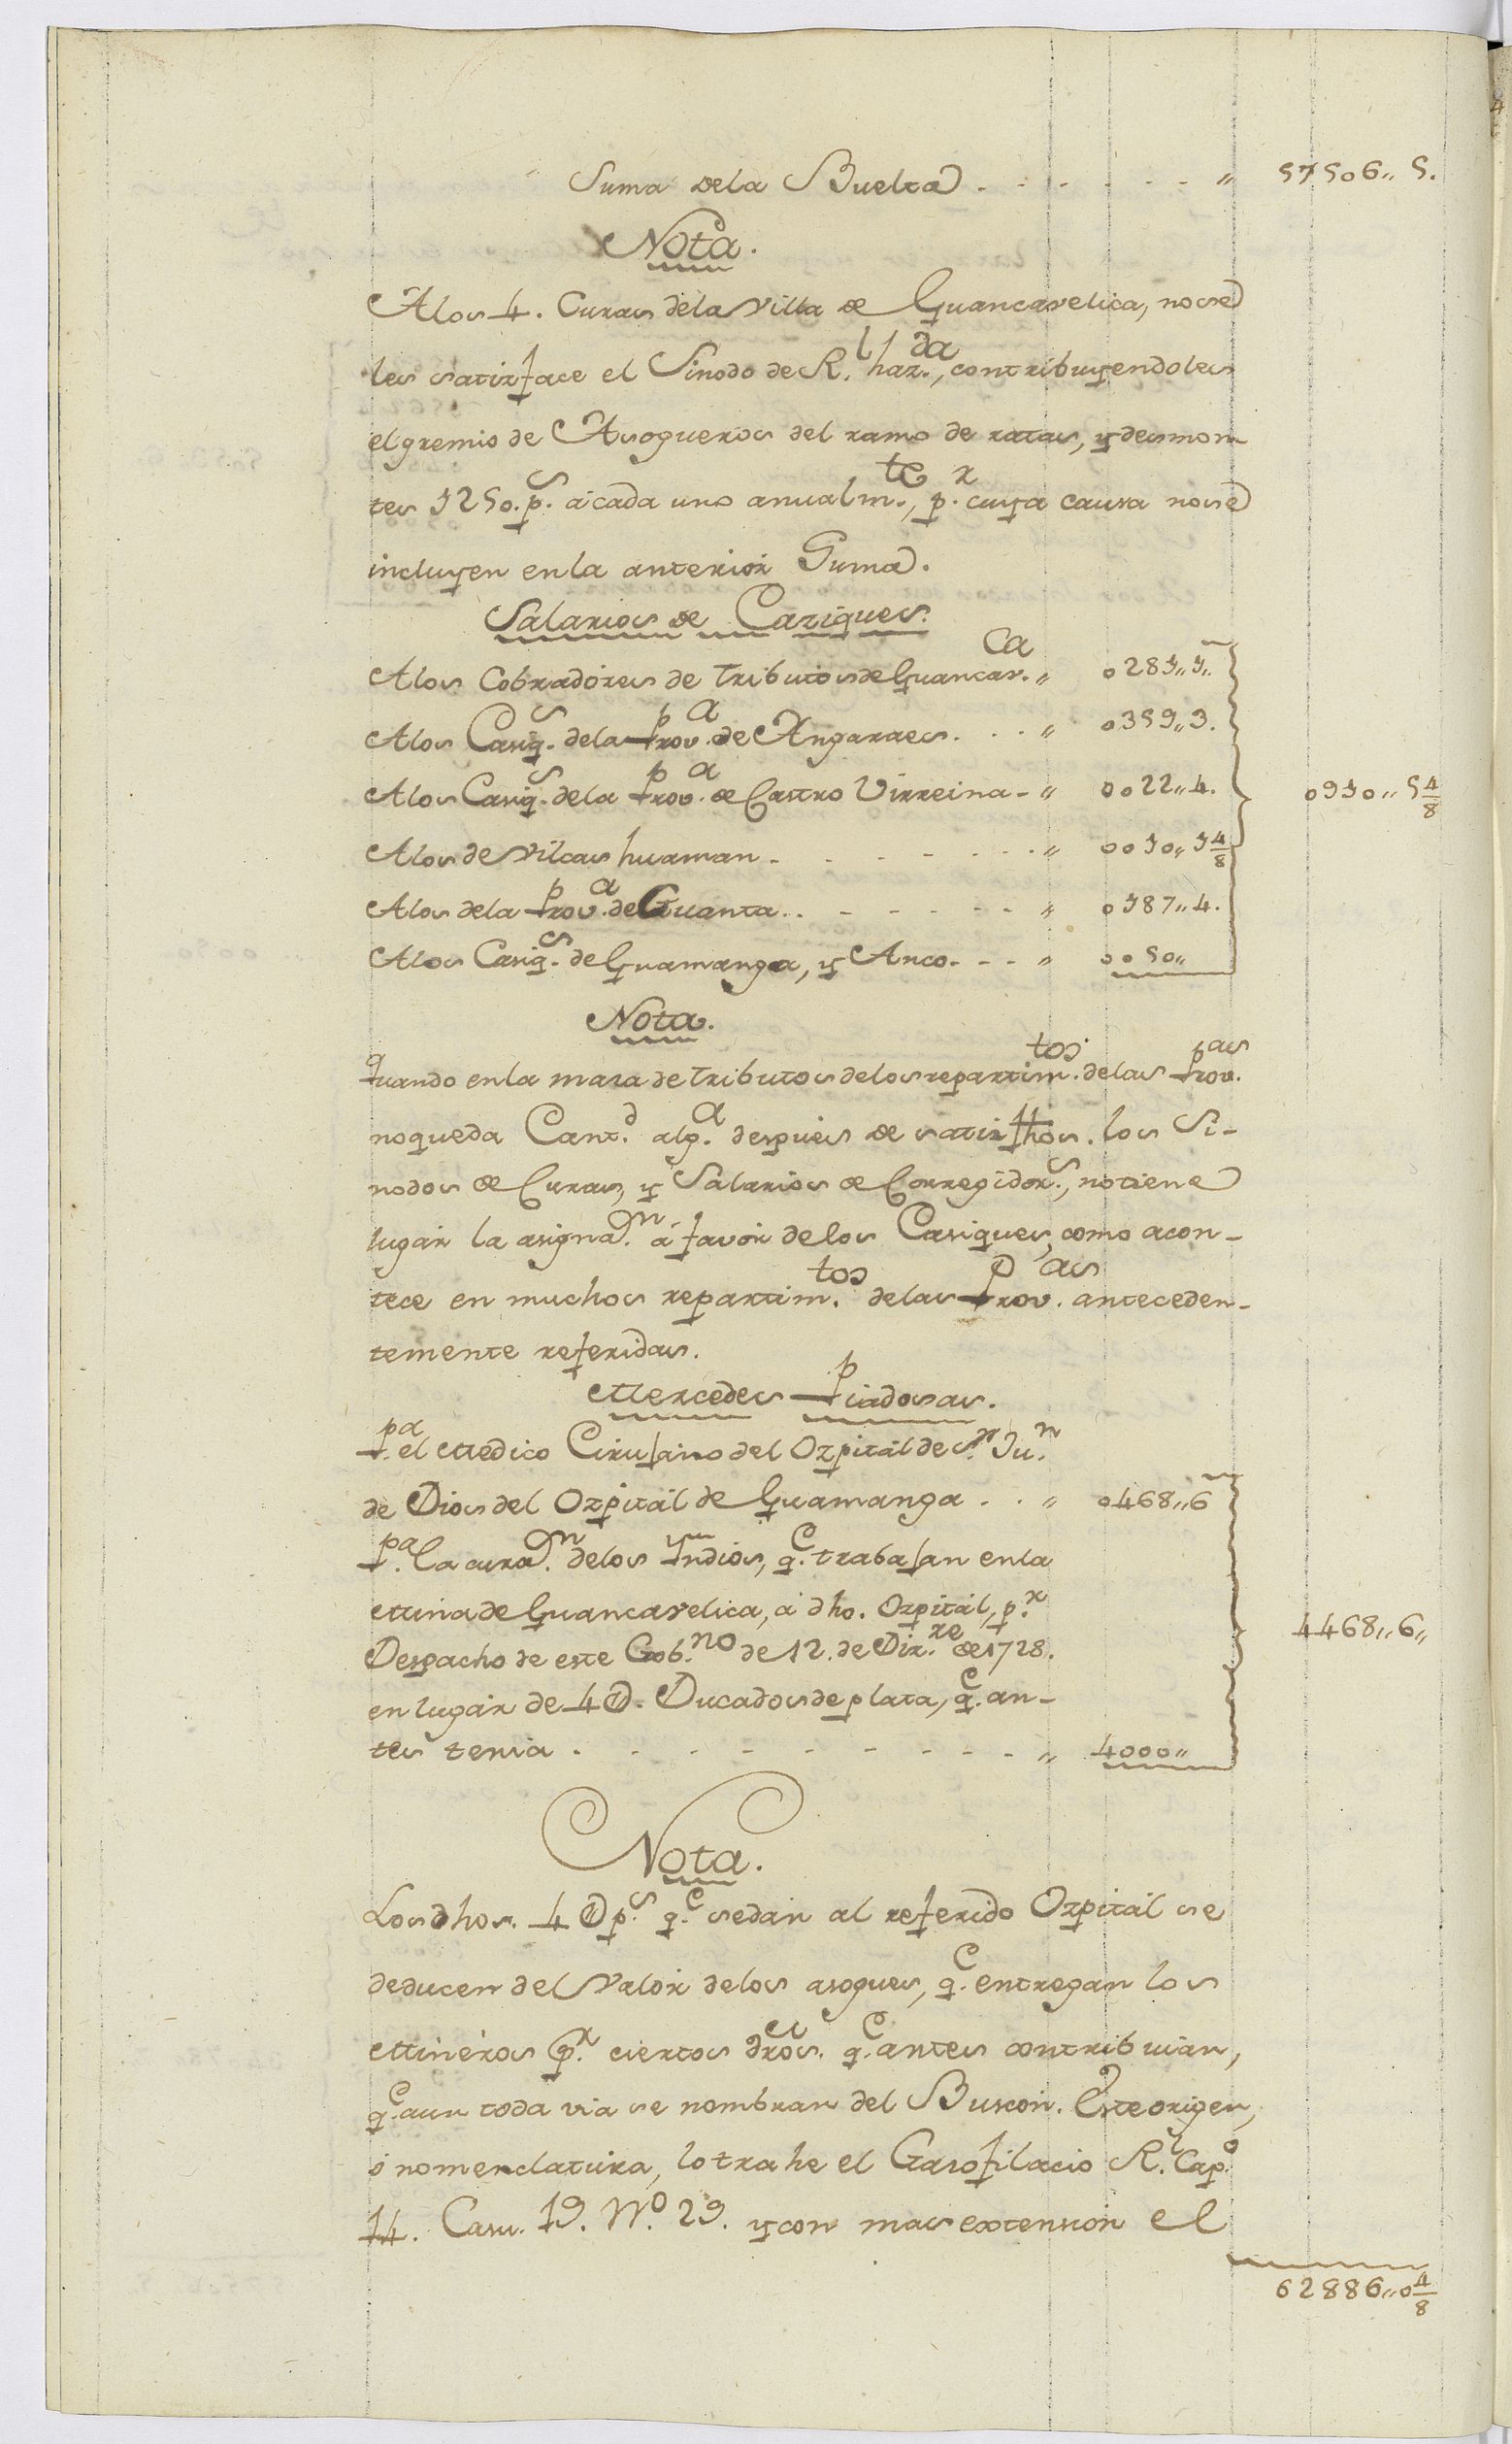 Suma dela Buelta . . . . . . " 57506,, 5.
Nota.
Alos 4. Curas dela Villa de Guancavelica, nose
les satisface el Sinodo de R.l haz.da, contribuyendoles
el gremio de Asogueros del ramo de ratas, y desmon
tes 1250. p.s á cada uno anualm.te, p.r cuya causa nose
incluyen en la anterior Suma.
Salarios de Caziques.
Alos Cobradores de Tributos de Guancav.ca " 0281,,1,,
Alos Casiq.s dela Prov.a de Angaraes. . . " 0359,,3.
Alos Casiq.s dela Prov.a de Castro Virreina - " 0022,,4. 0910,, 5 4/8
Alos de Vilcas huaman . . . . . . " 0010,, 1 4/8
Alos dela Prov.a de Guanta . . . . . . " 0187,,4.
Alos Casiq.s de Guamanga, y Anco. - - " 0050,,
Nota.
Quando en la masa de Tributos delos repartim.tos delas Prov.as
no queda Cant.d alg.a despues de satisfhos. los Si-
nodos de Curas, y Salarios de Corregidor.s, no tiene
lugar la asigna.on á favor delos Casiques, como acon-
tece en muchos repartim.tos delas Prov.as anteceden-
temente referidas.
Mercedes Piadosas.
P.a el Medico Cirujano del Ozpital de S.n Ju.n
de Dios del Ozpital de Guamanga . . " 0468,,6
P.a la cura.on delos Yndios, q.e trabajan en la
Mina de Guancavelica, á dho. Ozpital, p.r 4468,,6,,
Despacho de este Gob.no de 12. de Diz.re de 1728.
en lugar de 4 @. Ducados de plata, q.e an-
tes tenia . . . . . . . . . " 4000,,
Nota.
Los dhos. 4 @ p.s q.e se dán al referido Ozpital se
deducen del Valor delos asogues, q.e entregan los
Mineros p.r ciertos dros. q.e antes contribuian,
q.e aun toda via se nombran del Buscon. Este origen,
ó nomenclatura, lo trahe el Gasofilacio R.l Cap.o
14. Casu. 19. N.o 29. y con mas extension el
62886,,0 4/8